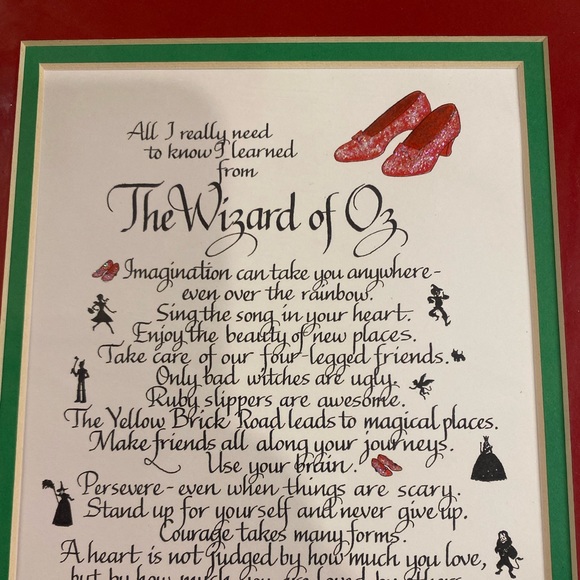 All I really need
to know I learned
from
The Wizard of Oz
Imagination can take you anywhere -
even over the rainbow.
Sing the song in your heart.
Enjoy the beauty of new places.
Take care of our four-legged friends.
Only bad witches are ugly.
Ruby slippers are awesome.
The Yellow Brick Road leads to magical places.
Make friends all along your journeys.
Use your brain.
Persevere - even when things are scary.
Stand up for yourself and never give up.
Courage takes many forms.
A heart is not judged by how much you love,
but by how much you are loved by others